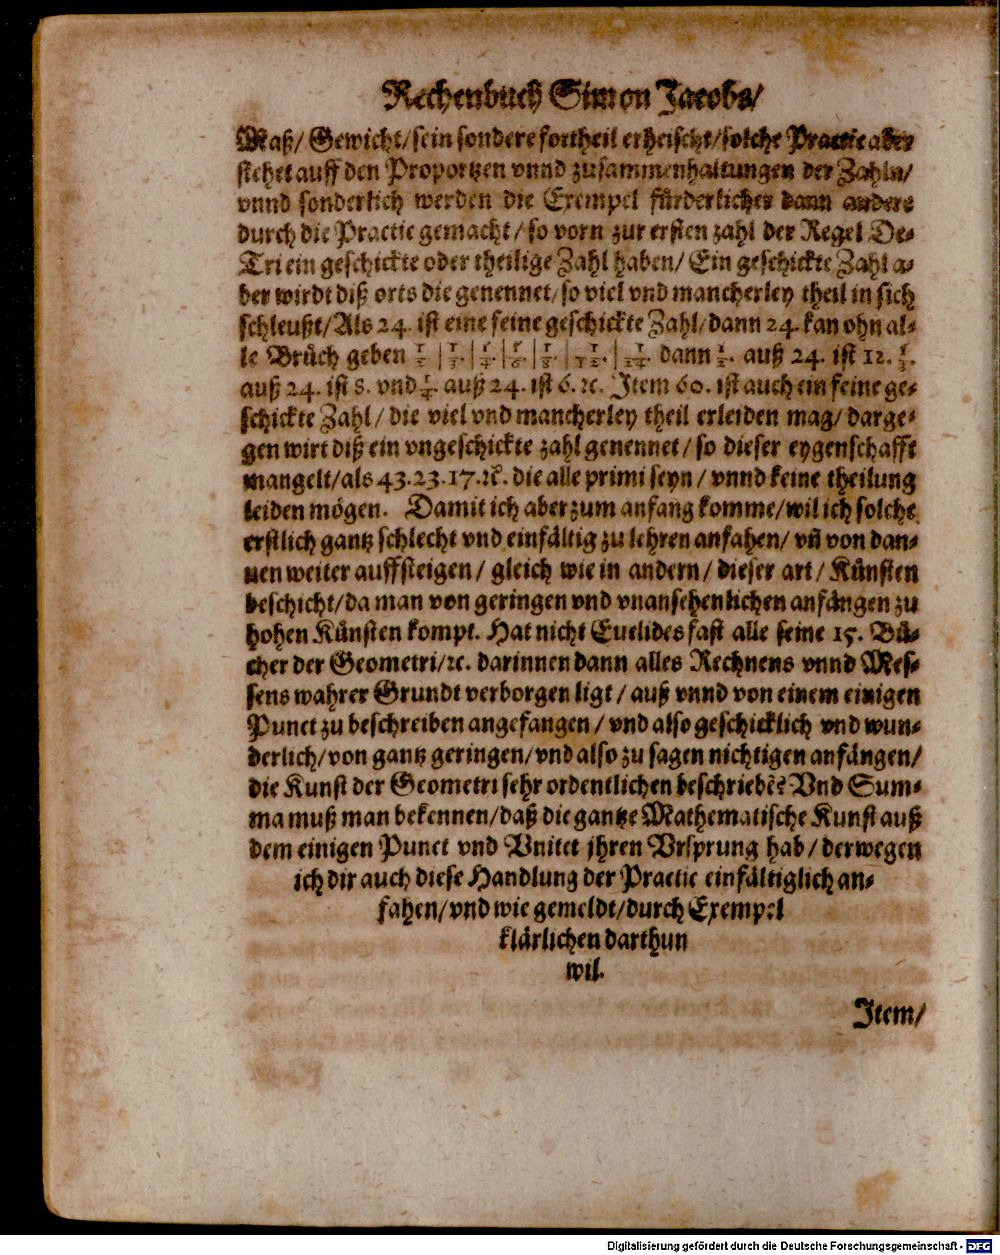 Rechenbuch Simon Jacobs/
Maß/ Gewicht/ sein sondere fortheil erheischt/ solche Practic aber
stehet auff den Proportzen vnnd zusammenhaltungen der Zahln/
vnnd sonderlich werden die Exempel fürderlicher dann anders
durch die Practic gemacht/ so vorn zur ersten zahl der Regel De-
Tri ein geschickte oder theilige Zahl haben/ Ein geschickte Zahl a-
ber wirdt diß orts die genennet/ so viel vnd mancherley theil in sich
schleußt/ Als 24. ist eine feine geschickte Zahl/ dann 24. kan ohn al-
le Brůch geben 1/2 | 1/3. | 1/4. | 1/6. | 1/8. | 1/12. | 1/24. dann 1/2. auß 24. ist 12. 1/3.
auß 24. ist 8. vnd 1/4. auß 24. ist 6. ꝛc. Item 60. ist auch ein feine ge-
schickte Zahl/ die viel vnd mancherley theil erleiden mag/ darge-
gen wirt diß ein vngeschickte zahl genennet/ so dieser eygenschafft
mangelt/ als 43. 23. 17. ꝛc. die alle primi seyn/ vnnd keine theilung
leiden mögen. Damit ich aber zum anfang komme/ wil ich solche
erstlich gantz schlecht vnd einfältig zu lehren anfahen/ vn̄ von dan-
nen weiter auffsteigen/ gleich wie in andern/ dieser art/ Kůnsten
beschicht/ da man von geringen vnd vnansehenlichen anfängen zu
hohen Kůnsten kompt. Hat nicht Euclides fast alle seine 15. Bů-
cher der Geometri/ ꝛc. darinnen dann alles Rechnens vnnd Mes-
sens wahrer Grundt verborgen ligt/ auß vnnd von einem einigen
Punct zu beschreiben angefangen/ vnd also geschicklich vnd wun-
derlich/ von gantz geringen/ vnd also zu sagen nichtigen anfängen/
die Kunst der Geometri sehr ordentlichen beschriebē? Vnd Sum-
ma muß man bekennen/ daß die gantze Mathematische Kunst auß
dem einigen Punct vnd Vnitet jhren Vrsprung hab/ derwegen
ich dir auch diese Handlung der Practic einfältiglich an-
fahen/ vnd wie gemeldt/ durch Exempel
klärlichen darthun
wil.
Item/
Digitalisierung gefördert durch die Deutsche Forschungsgemeinschaft - DFG